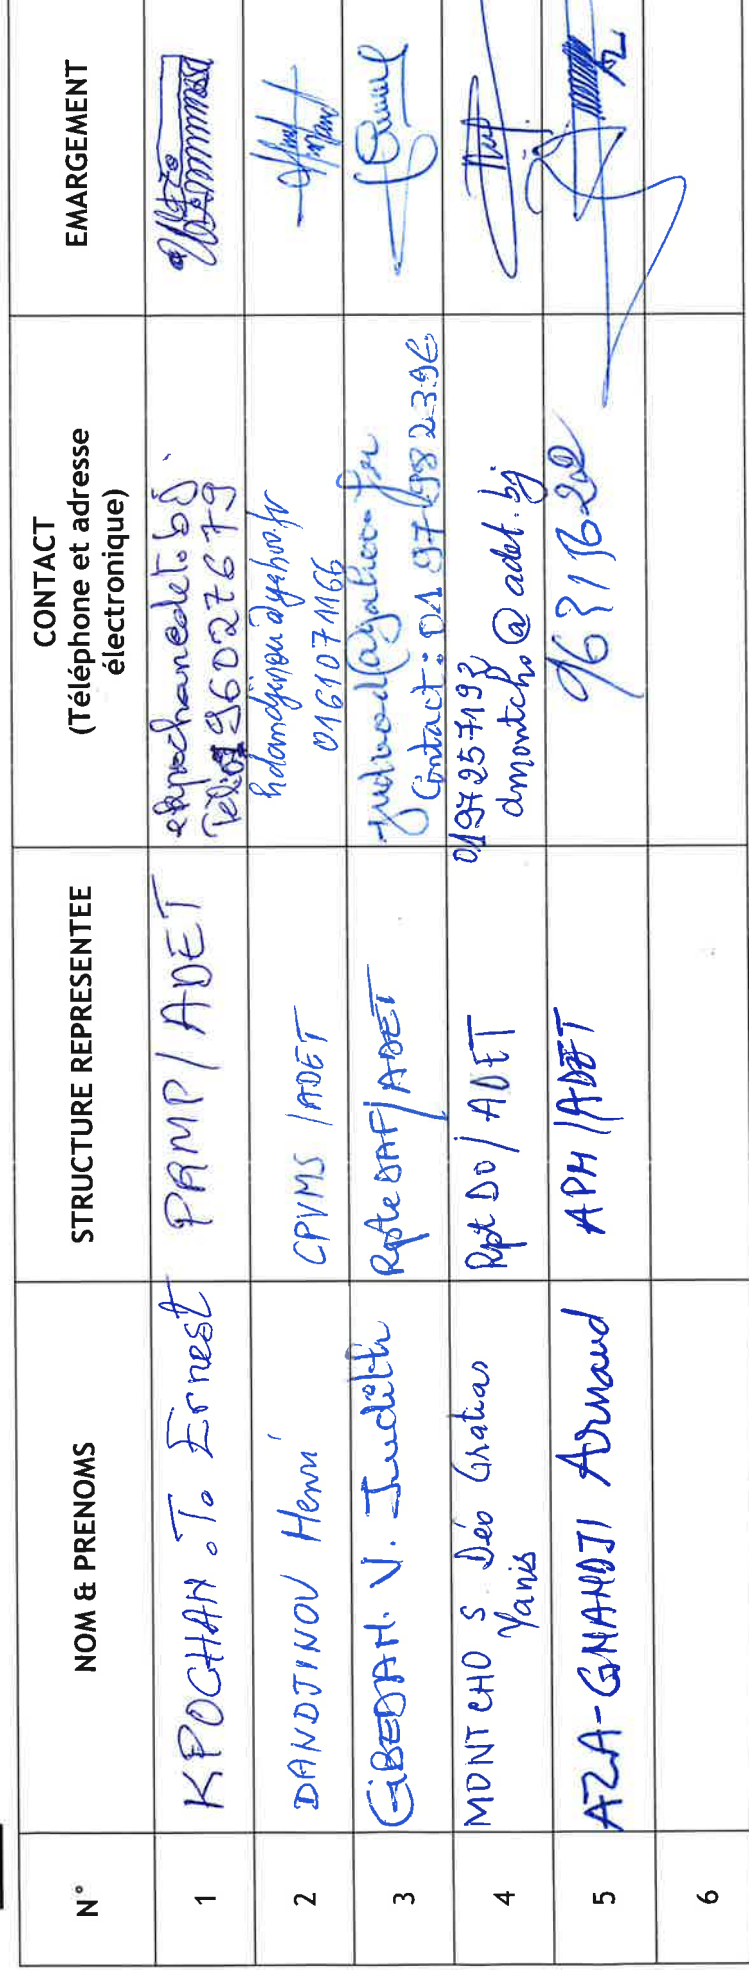 N° NOM & PRENOMS STRUCTURE REPRESENTEE CONTACT (Téléphone et adresse électronique) EMARGEMENT
1 KPOCHAN . T. Ernest PRMP/ADET ekpochan@adet.bj
Tél: 01 96027679
2 DANDJINOU Henri CPVMS /ADET hdandjinou@yahoo.fr
0161071166
3 GBEDAH. V. Judith Rpte DAF/ADET
Contact: 01 97
4 MONTCHO S. Déo Gratias Rpt DO/ADET
Yanis dmontcho@adet.bj
5 AZA-GNANDJI Arnaud APM/ADET
6